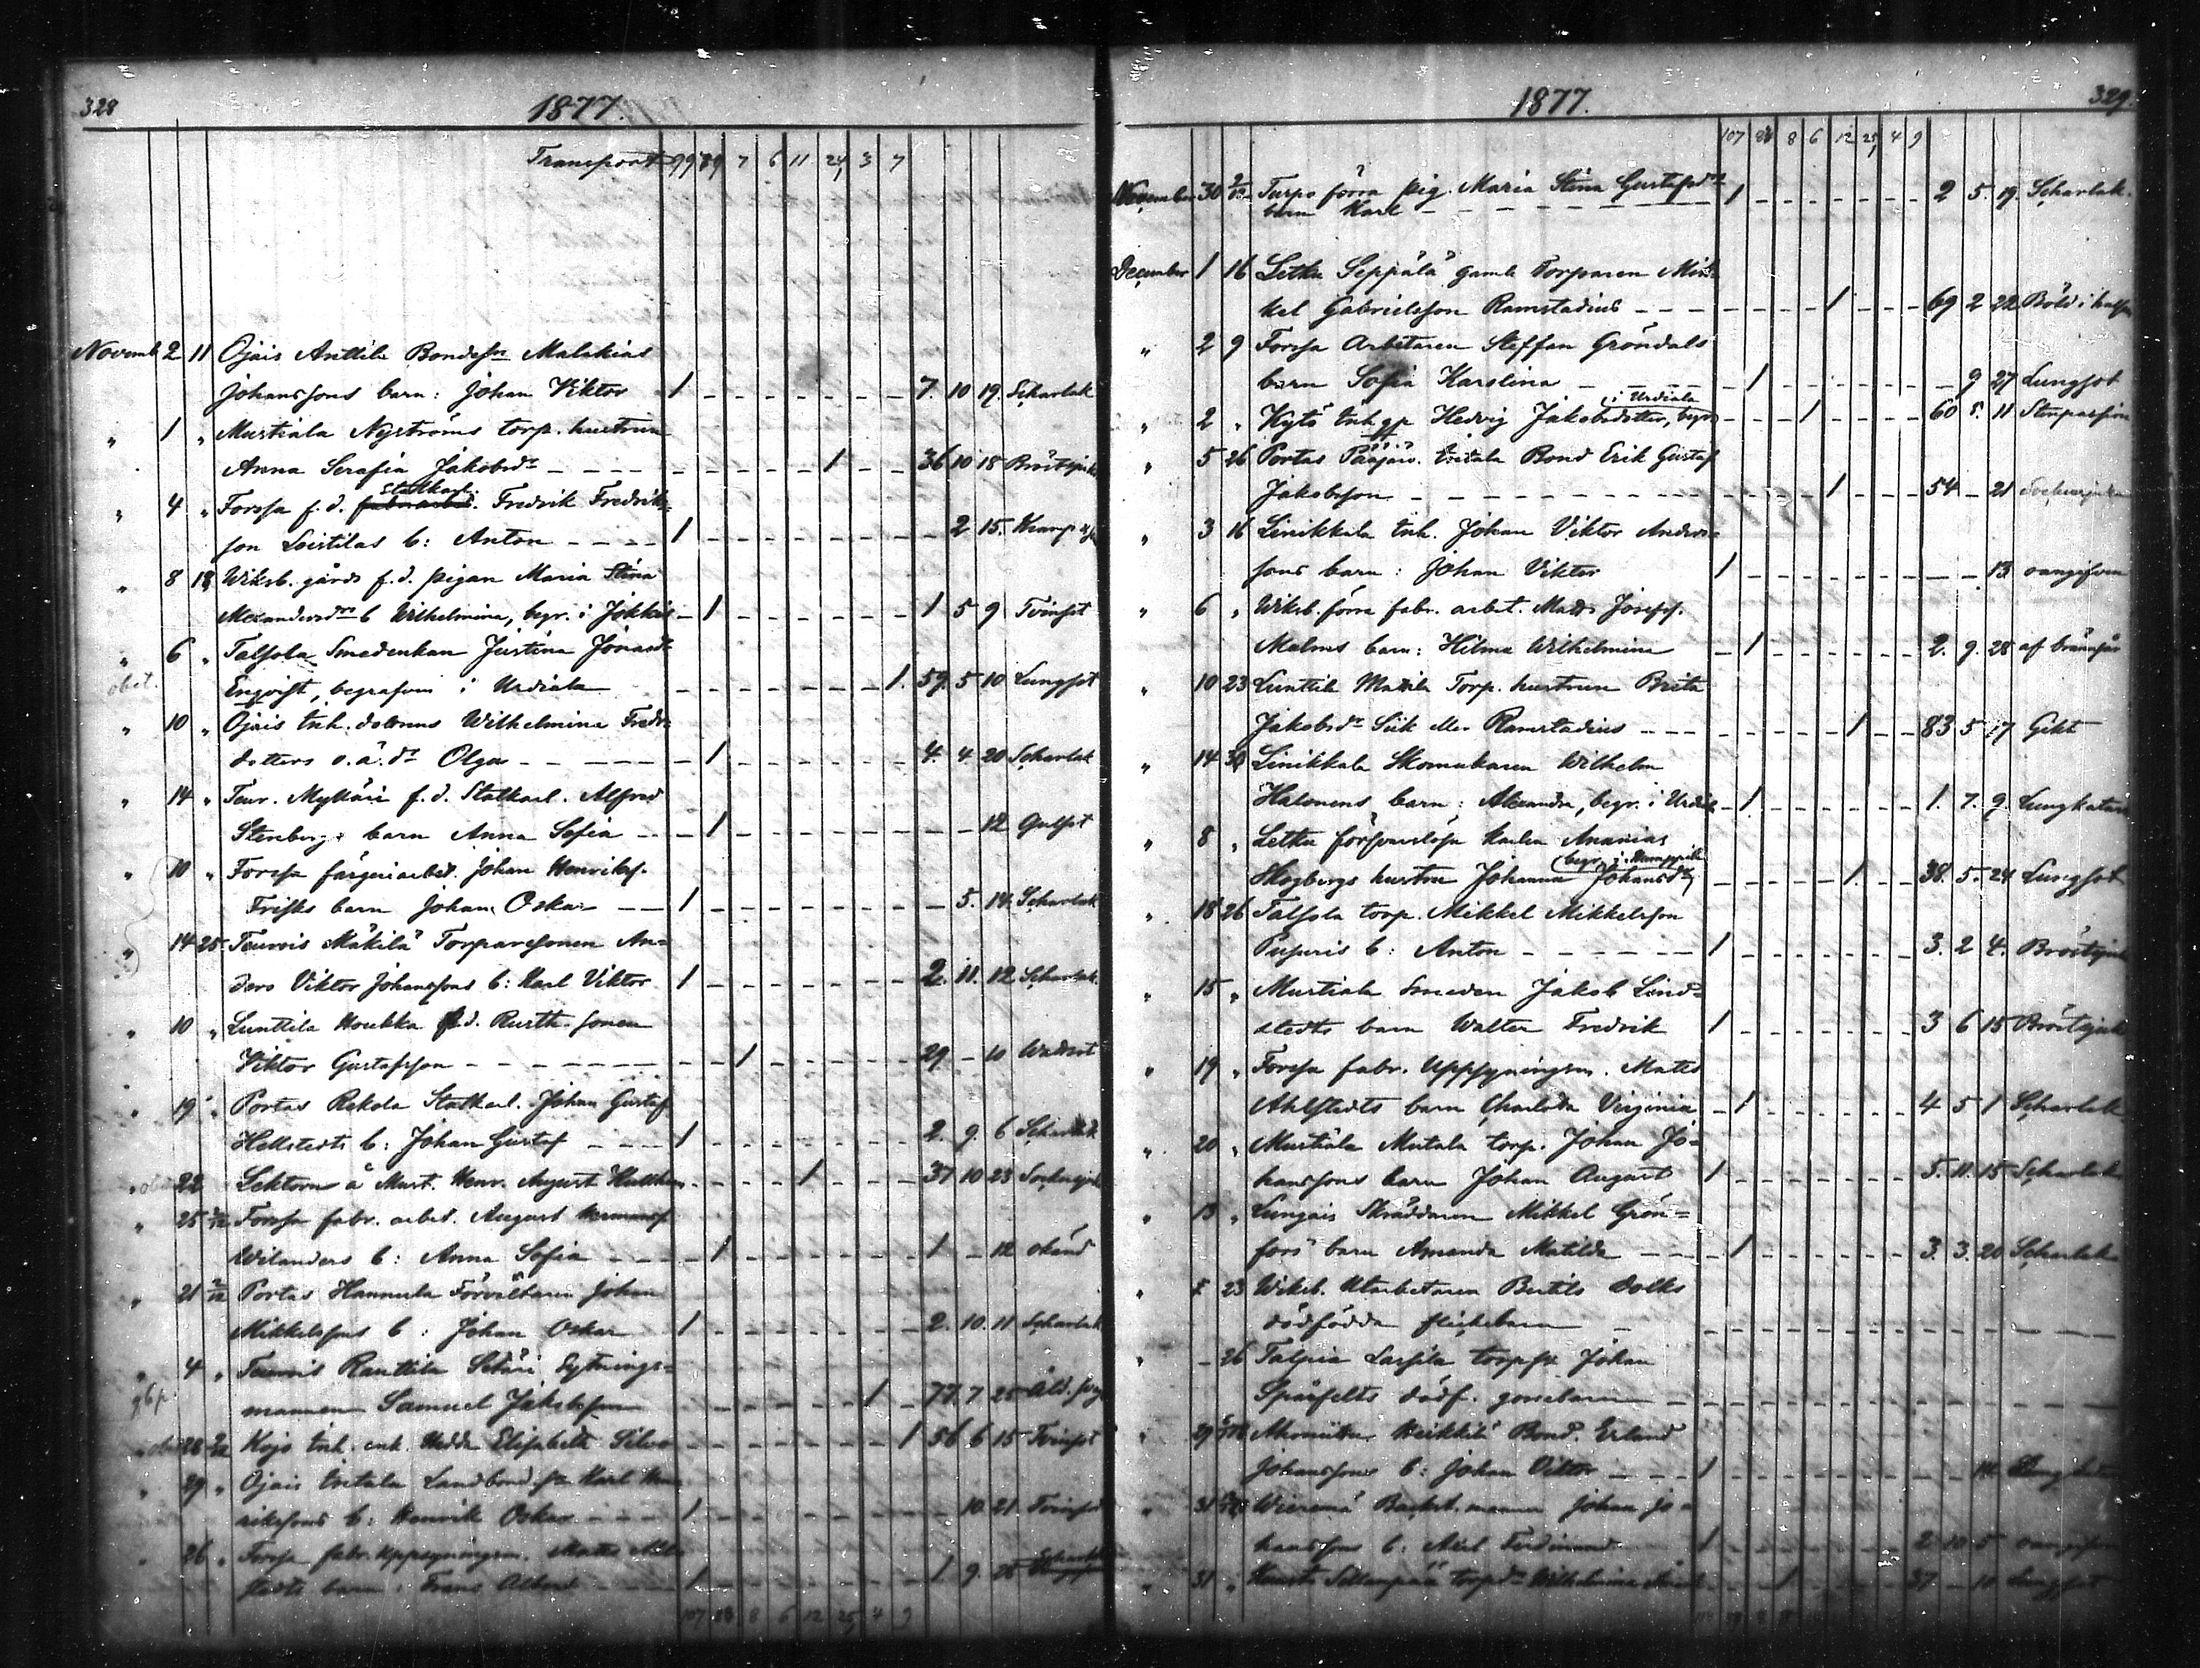 328
1877.
Transport 99 79 7 6 11 24 3 7
Novemb 2 11 Ojais Anttila Bondesn Malakias
Johanssons barn: Johan Viktor 1 7. 10 19. Scharlak
" 1 " Mustiala Nyströms torp. hustrun
Anna Serafia Jakobsdr 1 36 10 18 Bröstsjuka
" 4 " Forssa f. d. Statkarl. Fredrik Fredriks=
son Loistilas b: Anton 1 2 15. Kramp
" 8 18 Wiksb. gårds f. d. pigan Maria Stina
Alexandersdrs b Wilhelmina, begr. i Jokkis 1 1 5 9 Tvinsot
" 6 " Talsola Smedenkan Justina Jonasdr
obet. Enqvist, begrafven i Urdiala 1. 59. 5 10 Lungsot
" 10 " Ojais inh. dotterns Wilhelmina Fredr=
dotters o. ä. dr Olga 1 4. 4 20 Scharlak
" 14 " Teur. Mylläri f. d. Statkarl. Alfred
Stenbergs barn Anna Sofia 1 12 Gulsot
" 10 " Forssa färgeriarbet. Johan Henrikss.
Frisks barn Johan Oskar 1 5. 14. Scharlak
" 14 25 Teurois Mäkilä Torparesonen An=
ders Viktor Johanssons b: Karl Viktor 1 2. 11. 12 Scharlak.
" 10 " Lunttila Houkka f.d. Rusth. sonen
Viktor Gustafsson 1 29 - 10
" 19 " Portas Rekola Statkarl. Johan Gustaf
Hellstedts b: Johan Gustaf 1 2. 9. 6 Scharlak
22 Lektorn å Must. Henr. August 1 37 10 23
" 25 2/12 Forssa fabr. arbet. August Hermanss
Wilanders b: Anna Sofia 1 1 - 12 okänd
" 21 2/12 Portas Hannula Förvaltaren Johan
Mikkelssons b: Johan Oskar 1 2. 10. 11 Scharlak
" 4 " Teurois Rauttila Sytnings=
mannen Samuel Jakobsson 1 77. 7 25 Åld. svag
28 2/12 Kojo inh. enk. Hedda Elisabeth Silvo 1 56 6 15 Tvinsot
" 29 " Ojais Eritala Landbond. sn Karl Hen
rikssons b: Henrik Oskar 1 10. 21. Tvinsot
" 26 " Forssa fabr. uppsyningsm. Matts Ahl
stedts barn: Frans Albert 1 1 9. 25
107 88 8 6 12 25 4 9
1877.
329.
107 88 8 6 12 25 4 9
November 30 2/12 Turpo förra pig. Maria Stina Gustafsdrs
barn Karl 1 2 5. 19. Scharlak.
December 1 16 Letku Seppälä gamle Torparen Mik=
kel Gabrielsson Ramstadius 1 69 2 22 Böld i halsen
" 2 9 Forssa Arbetaren Steffan Gröndals
barn Sofia Karolina 1 9 27 Lungsot
" 2 " Kytö inh. gp Hedvig Jakobsdotter, begr i Urdiala 1 60 8. 11 Stenpassion
" 5 26 Portas Pääjärv. Eritala Bond Erik Gustaf
Jakobsson 1 54 - 21
" 3 16 Linikkala inh. Johan Viktor Anders=
sons barn: Johan Viktor 1 13 oangifven
" 6 " Wiksb. förra fabr. arbet. Matts Josefss.
Malms barn: Hilma Wilhelmina 1 2. 9. 28 af brännsår
" 10 23 Lunttila Mattila Torp. hustrun Brita
Jakobsdr Siik eller Ramstadius 1 83 5 17 Gikt
" 14 30 Linikkala Skomakaren Wilhelm
Halonens barn: Alexandra, begr. i Urdiala 1 1. 7. 9. Lungkatarr
" 8 " Letku försvarslöse karlen Ananias
Skogbergs hustru Johanna Johansdr begr. i Humppila 1 38. 5. 24 Lungsot
" 18 26 Talsola torp. Mikkel Mikkelsson
Pusuris b: Anton 1 3. 2 4. Bröstsjuk
" 15 " Mustiala Smeden Jakob Lind=
stedts barn Walter Fredrik 1 3 6 15 Bröstsjuk
" 19 " Forssa fabr. Uppsyningsm. Matts
Ahlstedts barn Charlotta Virginia 1 4 5 1 Scharlak
" 20 " Mustiala Mutala torp. Johan Jo=
hanssons barn Johan August 1 5. 11. 15 Scharlak
" 13 " Lungais Skräddaren Mikkel Grön=
fors' barn Amanda Matilda 1 3. 3. 20 Scharlak
" 5 23 Wiksb. Utarbetaren Bertils Dolks
dödfödda flickebarn
" - 26 Talpia Lassila torp. sn Johan
Spårfelts dödf. gossebarn
" 29 Heikkilä Bond. Erland
Johanssons b: Johan Viktor 1 14
" 31 Wieremä Backst. mannen Johan Jo=
hanssons b: Axel Ferdinand 1 2 10 5
31 " torpdr Wilhelmina 1 37 - 10 Lungsot